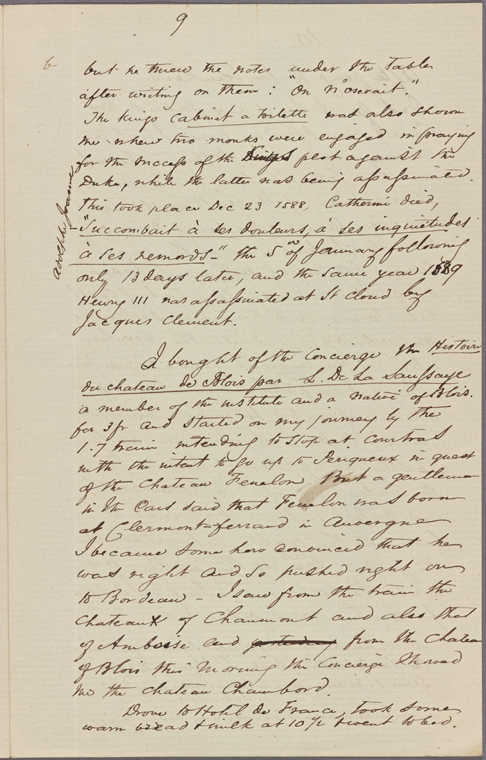 9
6
but he threw the notes under the table
after writing on them: "On n'oserait."
The Kings Cabinet a toilette was also shown
me where two monks were engaged in praying
for the success of the plot against the
Duke, while the latter was being assassinated.
This took place Dec 23 1588. Catherine died,
"Succombait à ses douleurs, a ses inquietudes
à ses remords-" the 5 of January following
Adolphe Joanne
only 13 days later, and the same year 1589
Henry III was assassinated at St Cloud by
Jacques Clement.
I bought of the Concierge the Histoire
du chateau de Blois par L. De La Saussaye
a member of the institute and a native of Blois.
for 3 fr and started on my journey by the
1.7 train intending to stop at Coutras
with the intent to go up to Perigueux in quest
of the Chateau Fenelon. But a gentleman
in the Cars said that Fenelon was born
at Clermont=ferrand in Auvergne
I became some how convinced that he
was right and so pushed right on
to Bordeau - I saw from the train the
Chateaux of Chaumont and also that
of Amboise and from the Chateau
of Blois this morning the Concierge showed
me the chateau Chambord.
Drove to Hotel de France, took some
warm bread & milk at 10½ & went to bed.